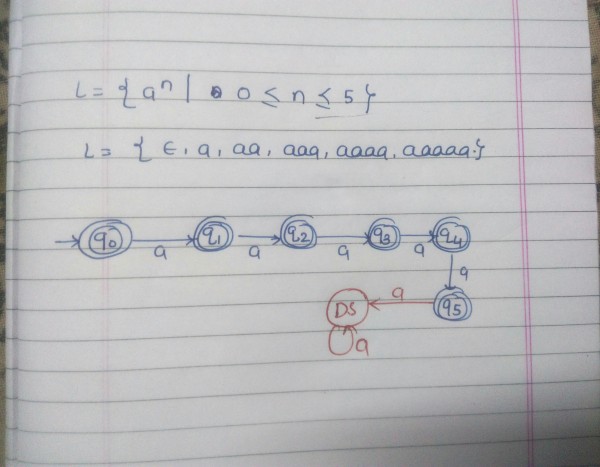 L = { aⁿ | 0 ≤ n ≤ 5 }
L = { ∈, a, aa, aaa, aaaa, aaaaa. }
q0 a q1 a q2 a q3 a q4
a
DS a q5
a